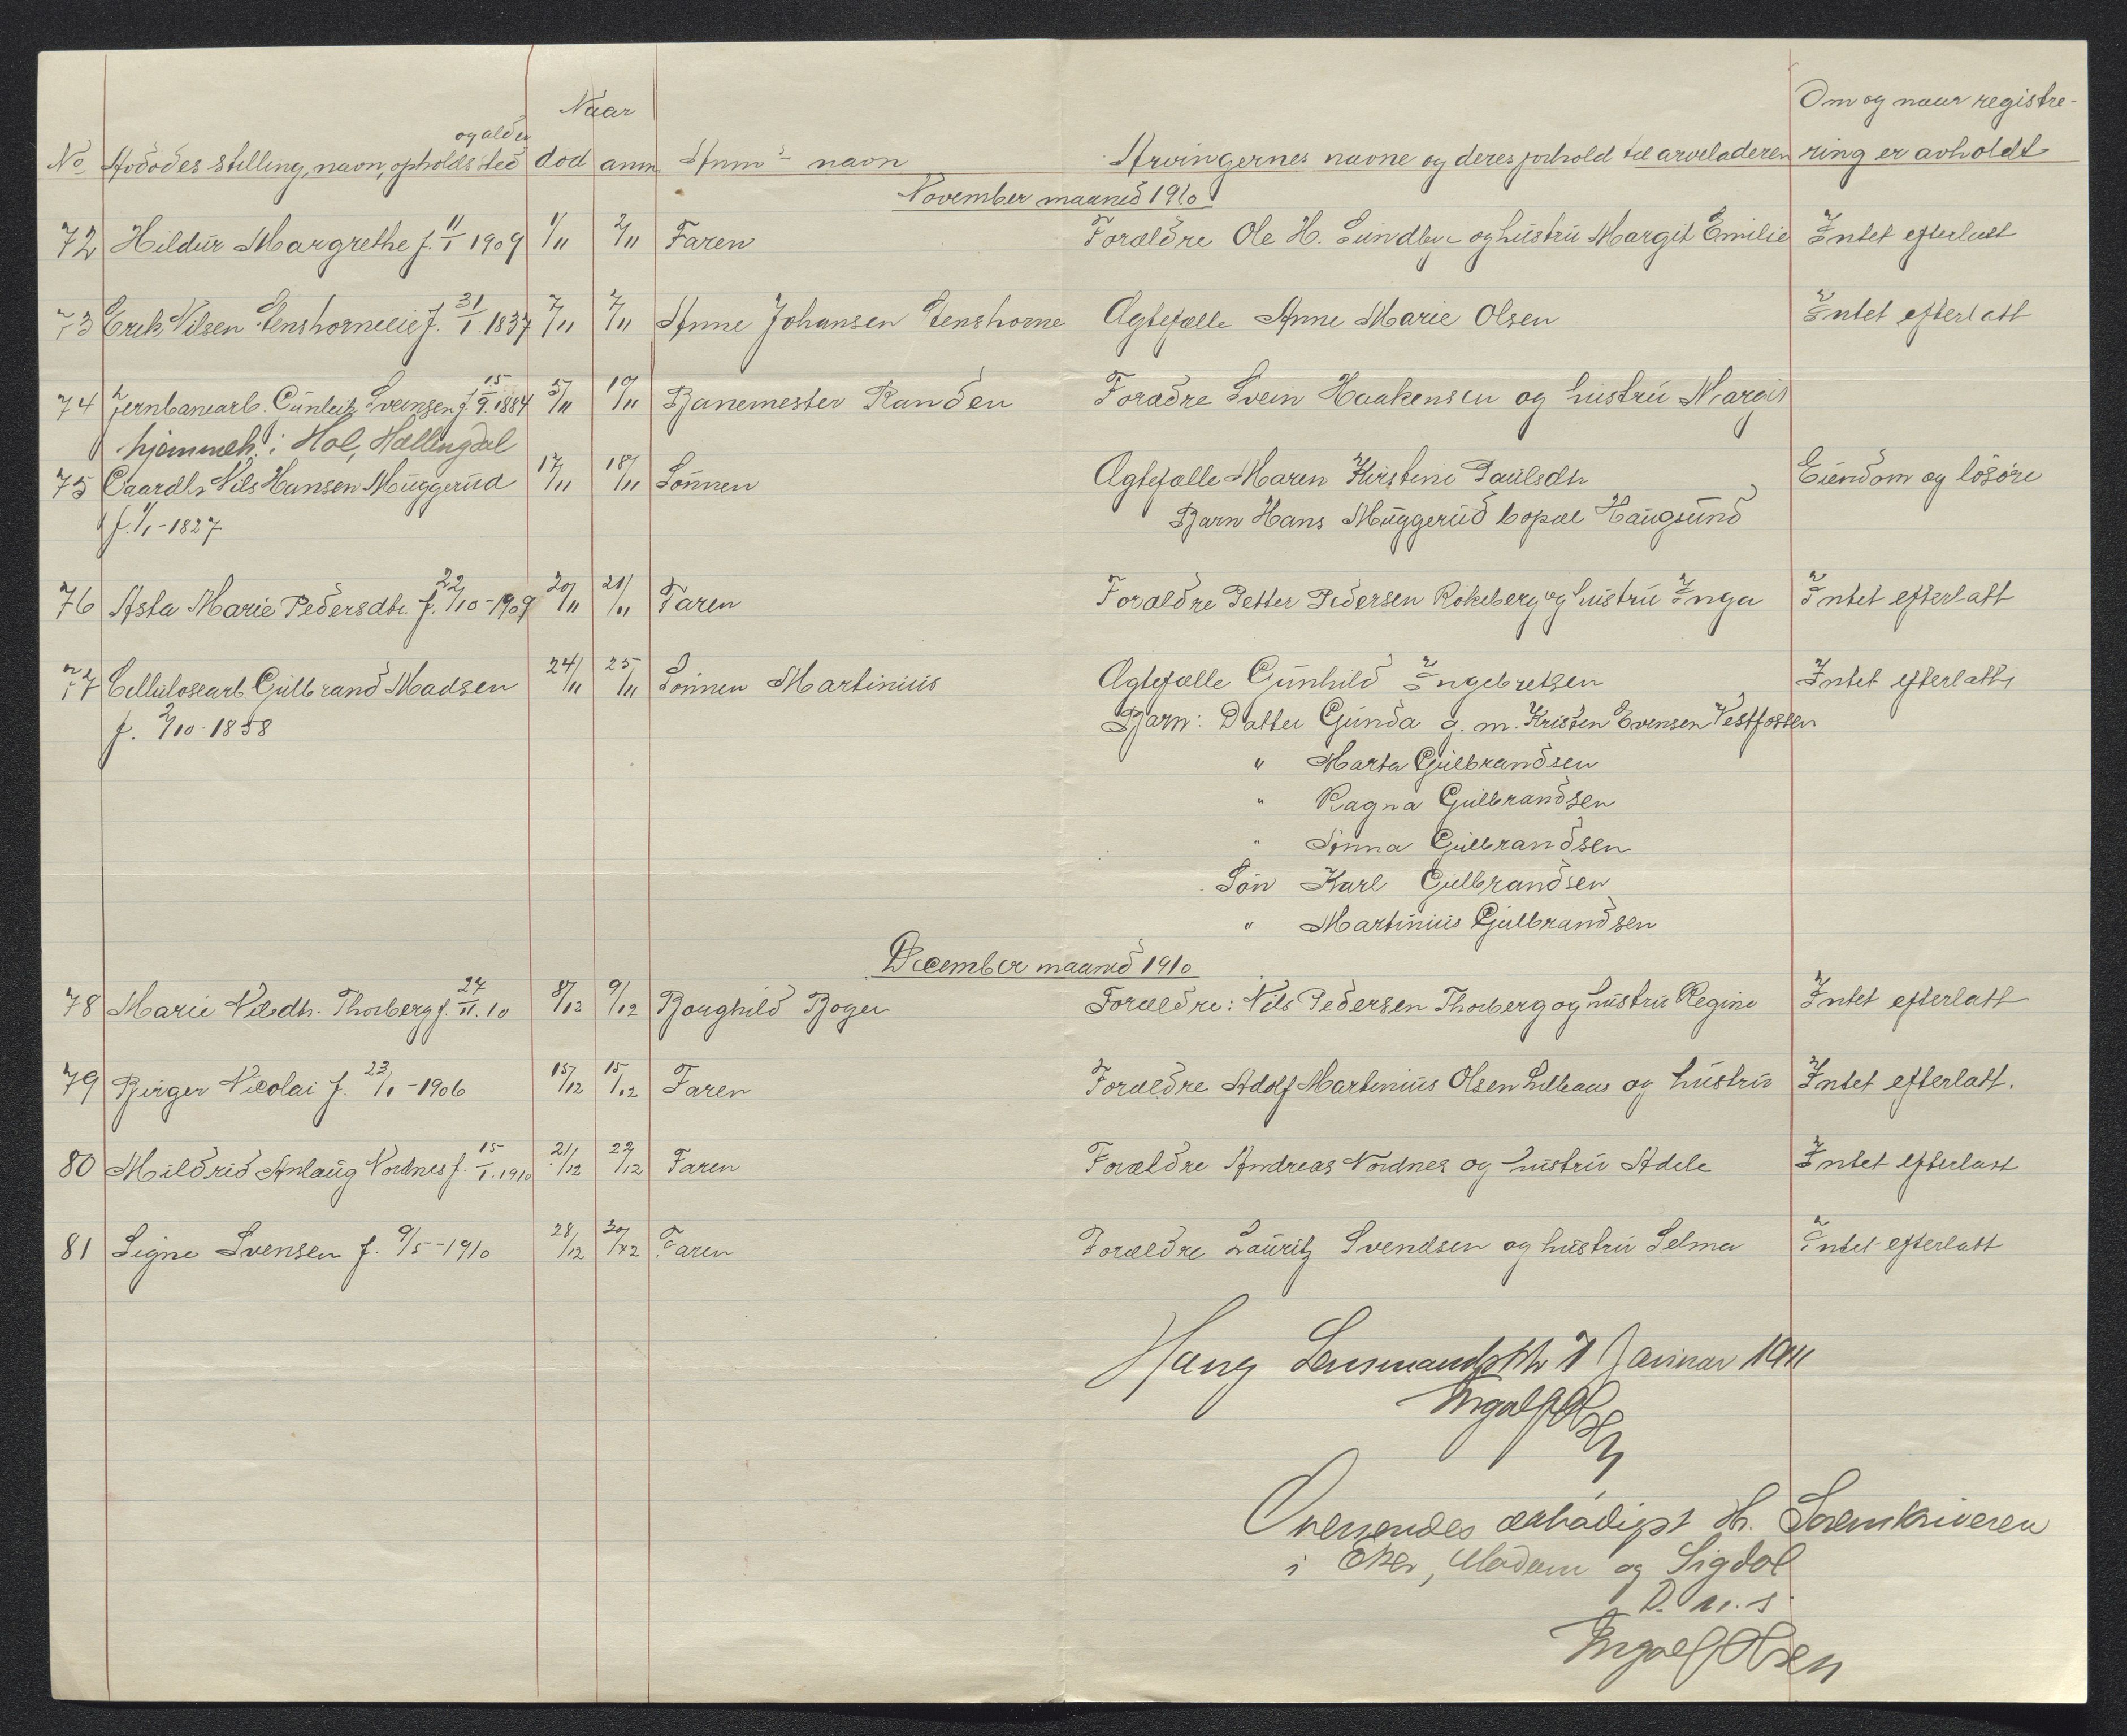 Naar
Om og naar registre-
og alder
No Avdødes stilling, navn, opholdssted død anm Anm's navn Arvingernes navne og deres forhold til arveladeren ring er avholdt
November maaned 1910
72 Hildur Margrethe f. 11/I 1909 1/11 2/11 Faren Forældre Ole H. Lundby og hustru Margit Emilie Intet efterlatt
73 Erik Nilsen Stenshorneeie f. 31/I. 1837 7/11 7/11 Anne Johansen Stenshorne Ægtefælle Anne Marie Olsen Intet efterlatt
74 Jernbanearb. Gunleik Sveinsen f. 15/9. 1884 5/11 10/11 Banemester Randen Forædre Svein Haakensen og hustru Margit
hjemmeh. i Hol, Hallingdal
75 Gaardbr Nils Hansen Muggerud 17/11 18/11 Sønnen Ægtefælle Maren Kirstine Paulsdtr Eiendom og løsøre
f. 1/1-1827 Barn Hans Muggerud bopæl Haugsund
76 Asta Marie Pedersdtr. f. 22/10-1909 20/11 21/11 Faren Forældre Petter Pedersen Rokeberg og hustru Inga Intet efterlatt
77 Cellulosearb. Gulbrand Madsen 24/11 25/11 Sønnen Martinius Ægtefælle Gunhild Ingebretsen Intet efterlatt
f. 2/10-1858 Barn: Datter Gunda g. m. Kristen Evensen Vestfossen
" Marta Gulbrandsen
" Ragna Gulbrandsen
" Anna Gulbrandsen
Søn Karl Gulbrandsen
" Martinius Gulbrandsen
December maaned 1910
78 Marie Nilsdtr. Thorberg f. 27/11. 10 8/12 9/12 Borghild Bogen Forældre: Nils Pedersen Thorberg og hustru Regine Intet efterlatt
79 Birger Nicolai f. 23/1-1906 15/12 15/12 Faren Forældre Adolf Martinius Olsen Lilleaas og hustru Intet efterlatt.
80 Mildrid Anlaug Nordnes f. 15/I. 1910 21/12 22/12 Faren Forældre Andreas Nordnes og hustru Adele Intet efterlatt
81 Signe Svensen f. 9/5-1910 28/12 30/12 Faren Forældre Lauritz Svendsen og hustru Selma Intet efterlatt
Haug Lensmandsktr 7 Januar 1911
Ingolf Olsen
Oversendes ærbødigst Hr. Sorenskriveren
i Eker, Modum og Sigdal
D. u. s.
Ingolf Olsen